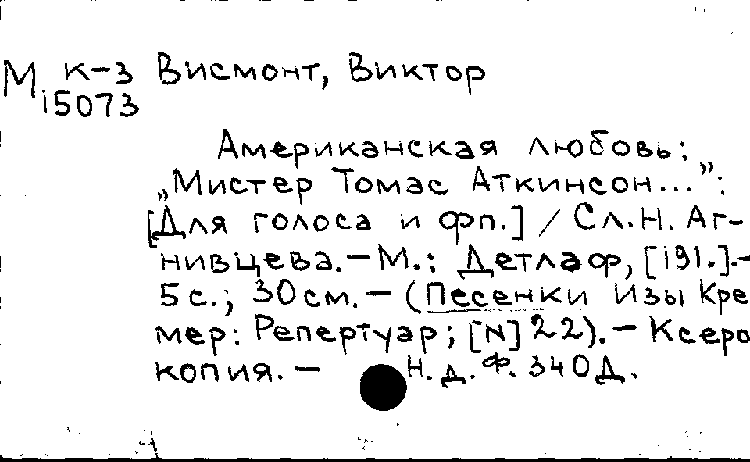 М К-3 Висмонт, Виктор
i5073
Американская любовь:
„Мистер Томас Аткинсон...”:
[Для голоса и фп.] / Сл. Н. Аг-
нивцева. – М.: Детлаф, [191.]. –
5 с.; 30 см. – (Песенки Изы Кре
мер: Репертуар; [N] 22). – Ксеро
копия. – Н. д. Ф. 340Д.